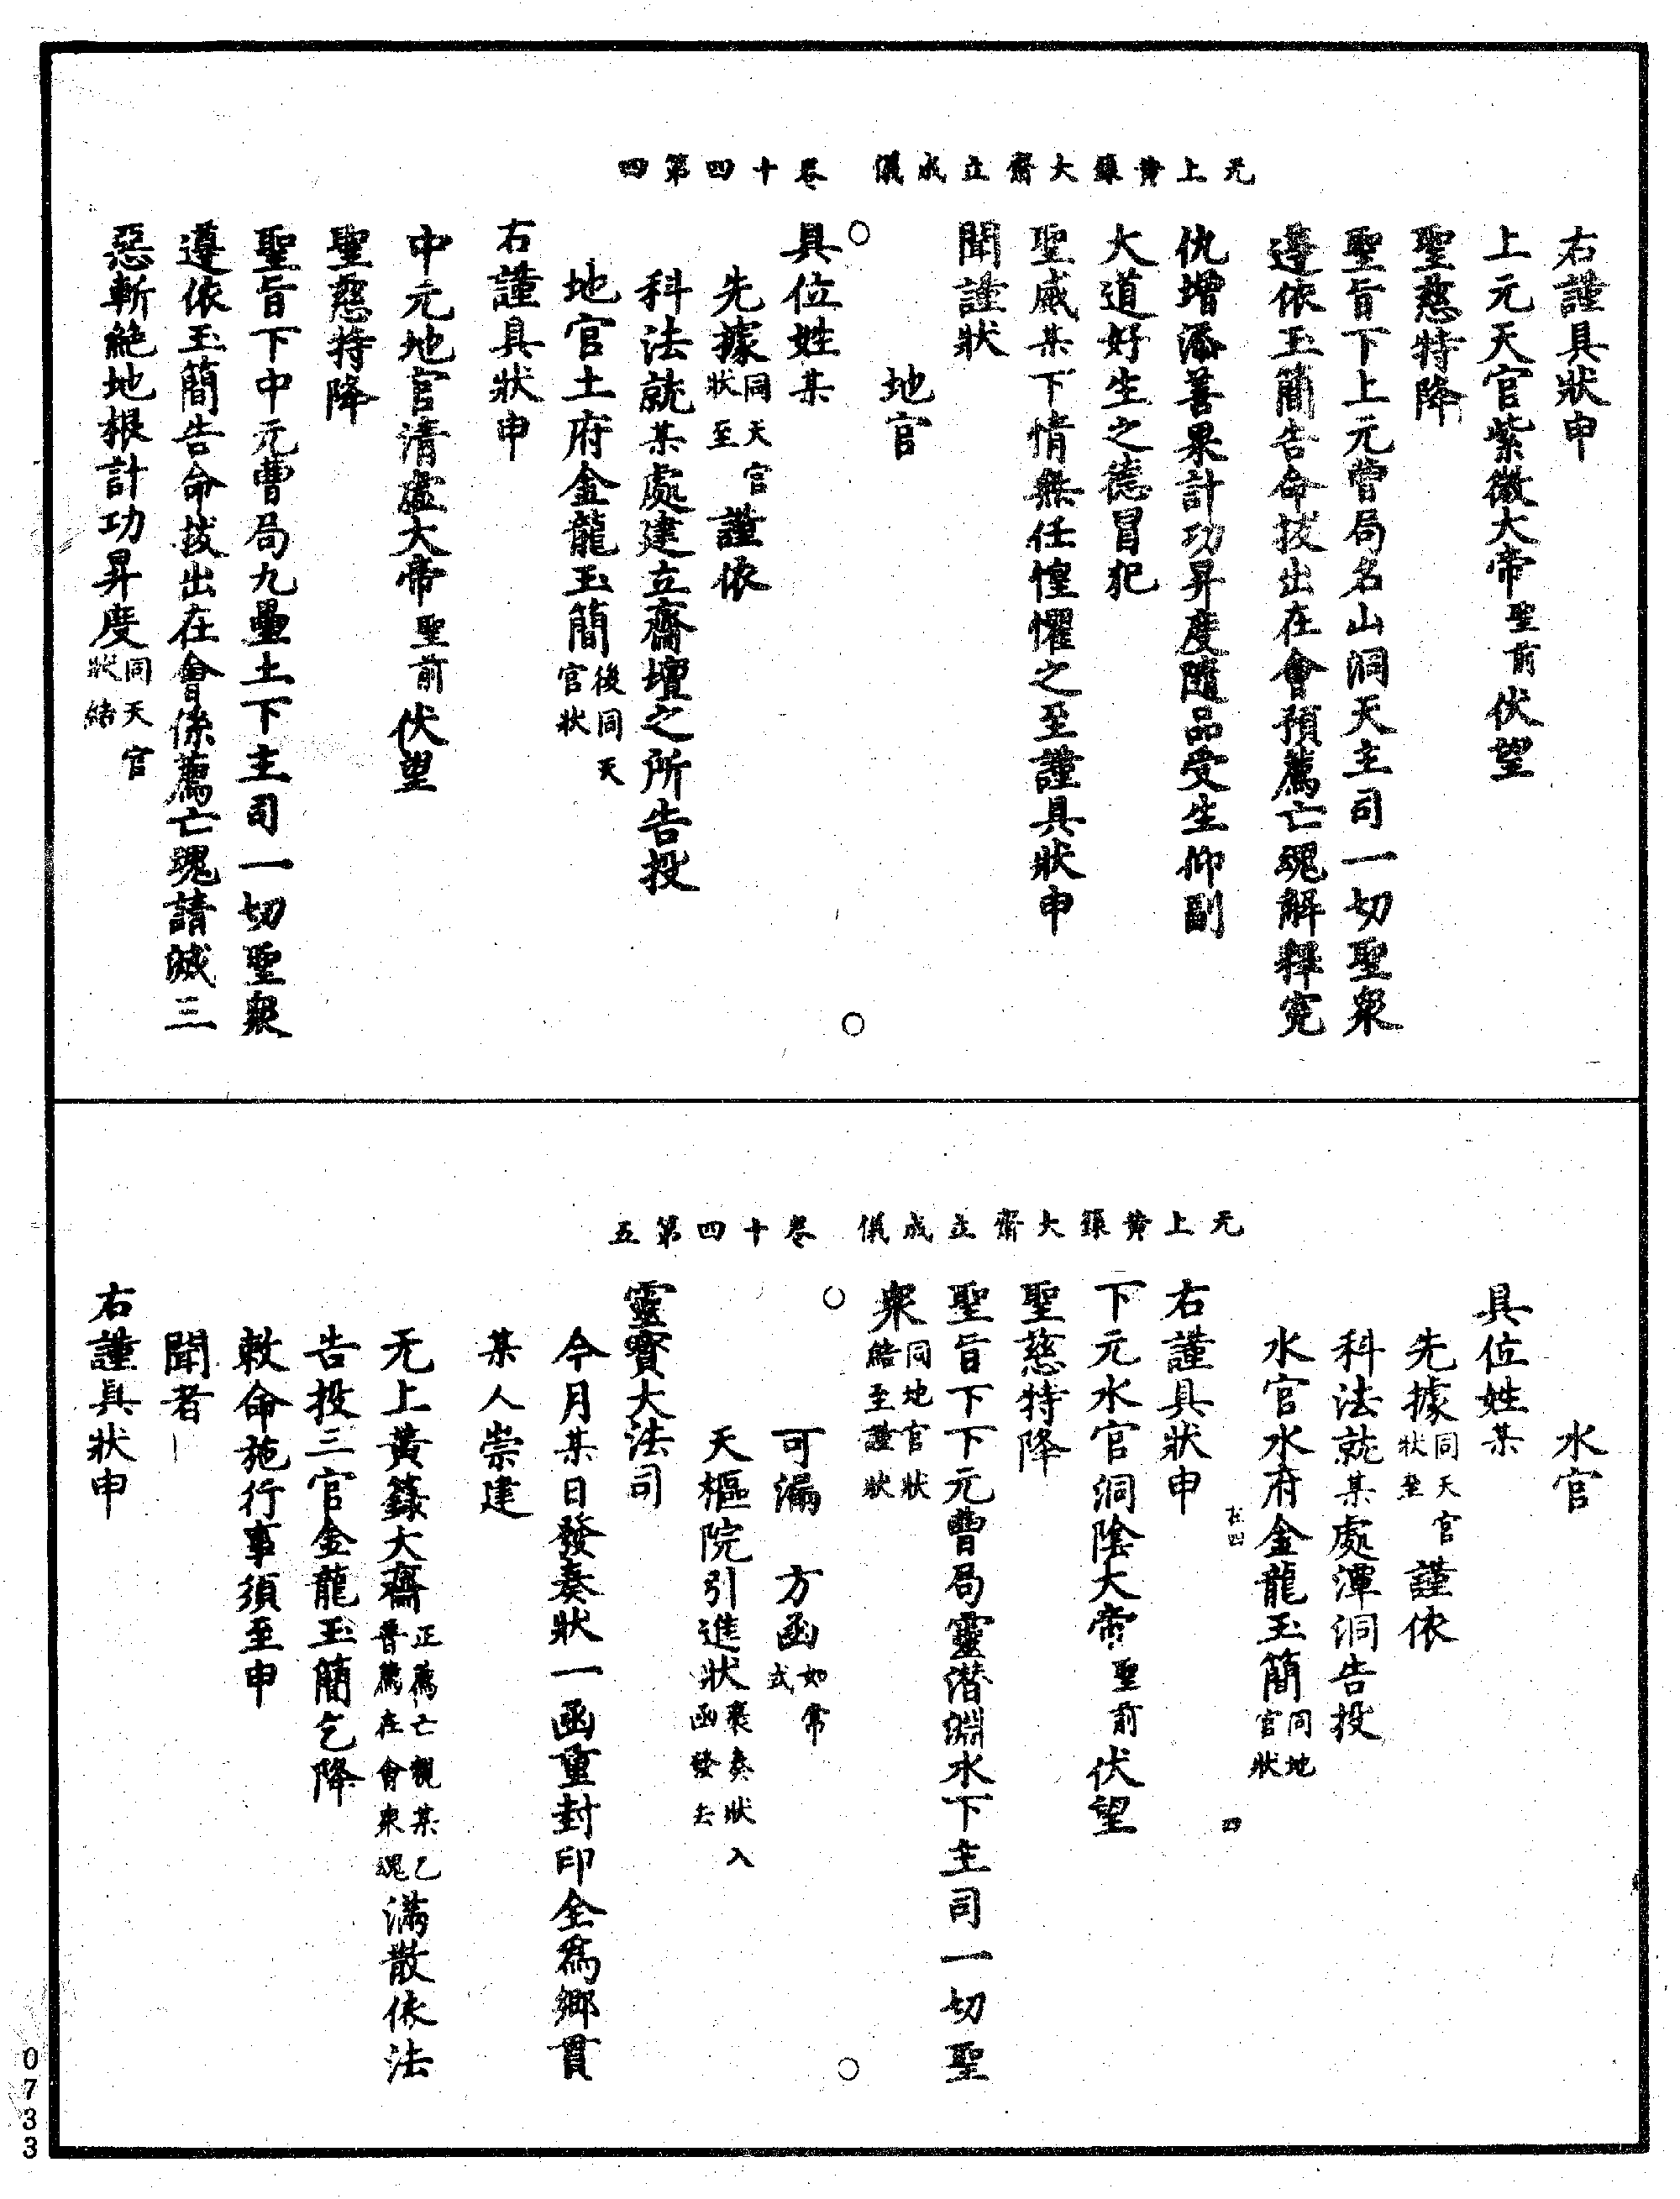 无上黃籙大齋立成儀　卷十四第四
右謹具狀申
上元天官紫微大帝聖前伏望
聖慈特降
聖旨下上元曹局名山洞天主司一切聖衆
遵依玉簡告命拔出在會預薦亡魂解釋冤
仇增添善果計功昇度隨品受生仰副
大道好生之德冒犯
聖威某下情無任惶懼之至謹具狀申
聞謹狀
地官
具位姓某
先據同天官狀至謹依
科法就某處建立齋壇之所告投
地官土府金龍玉簡後同天官狀
右謹具狀申
中元地官清虛大帝聖前伏望
聖慈特降
聖旨下中元曹局九壘土下主司一切聖衆
遵依玉簡告命拔出在會係薦亡魂請滅三
惡斬絕地根計功昇度同天官狀結
无上黃籙大齋立成儀　卷十四第五
水官
具位姓某
先據同天官狀至謹依
科法就某處潭洞告投
水官水府金龍玉簡同地官狀
右謹具狀申
下元水官洞陰大帝聖前伏望
聖慈特降
聖旨下下元曹局靈潛淵水下主司一切聖
衆同地官狀結至謹狀
可漏　方函如常式
天樞院引進狀裹奏狀入函發去
靈寶大法司
今月某日發奏狀一函重封印全爲鄉貫
某人崇建
无上黃籙大齋正薦亡親某乙普薦在會衆魂滿散依法
告投三官金龍玉簡乞降
敕命施行事須至申
聞者
右謹具狀申
0733